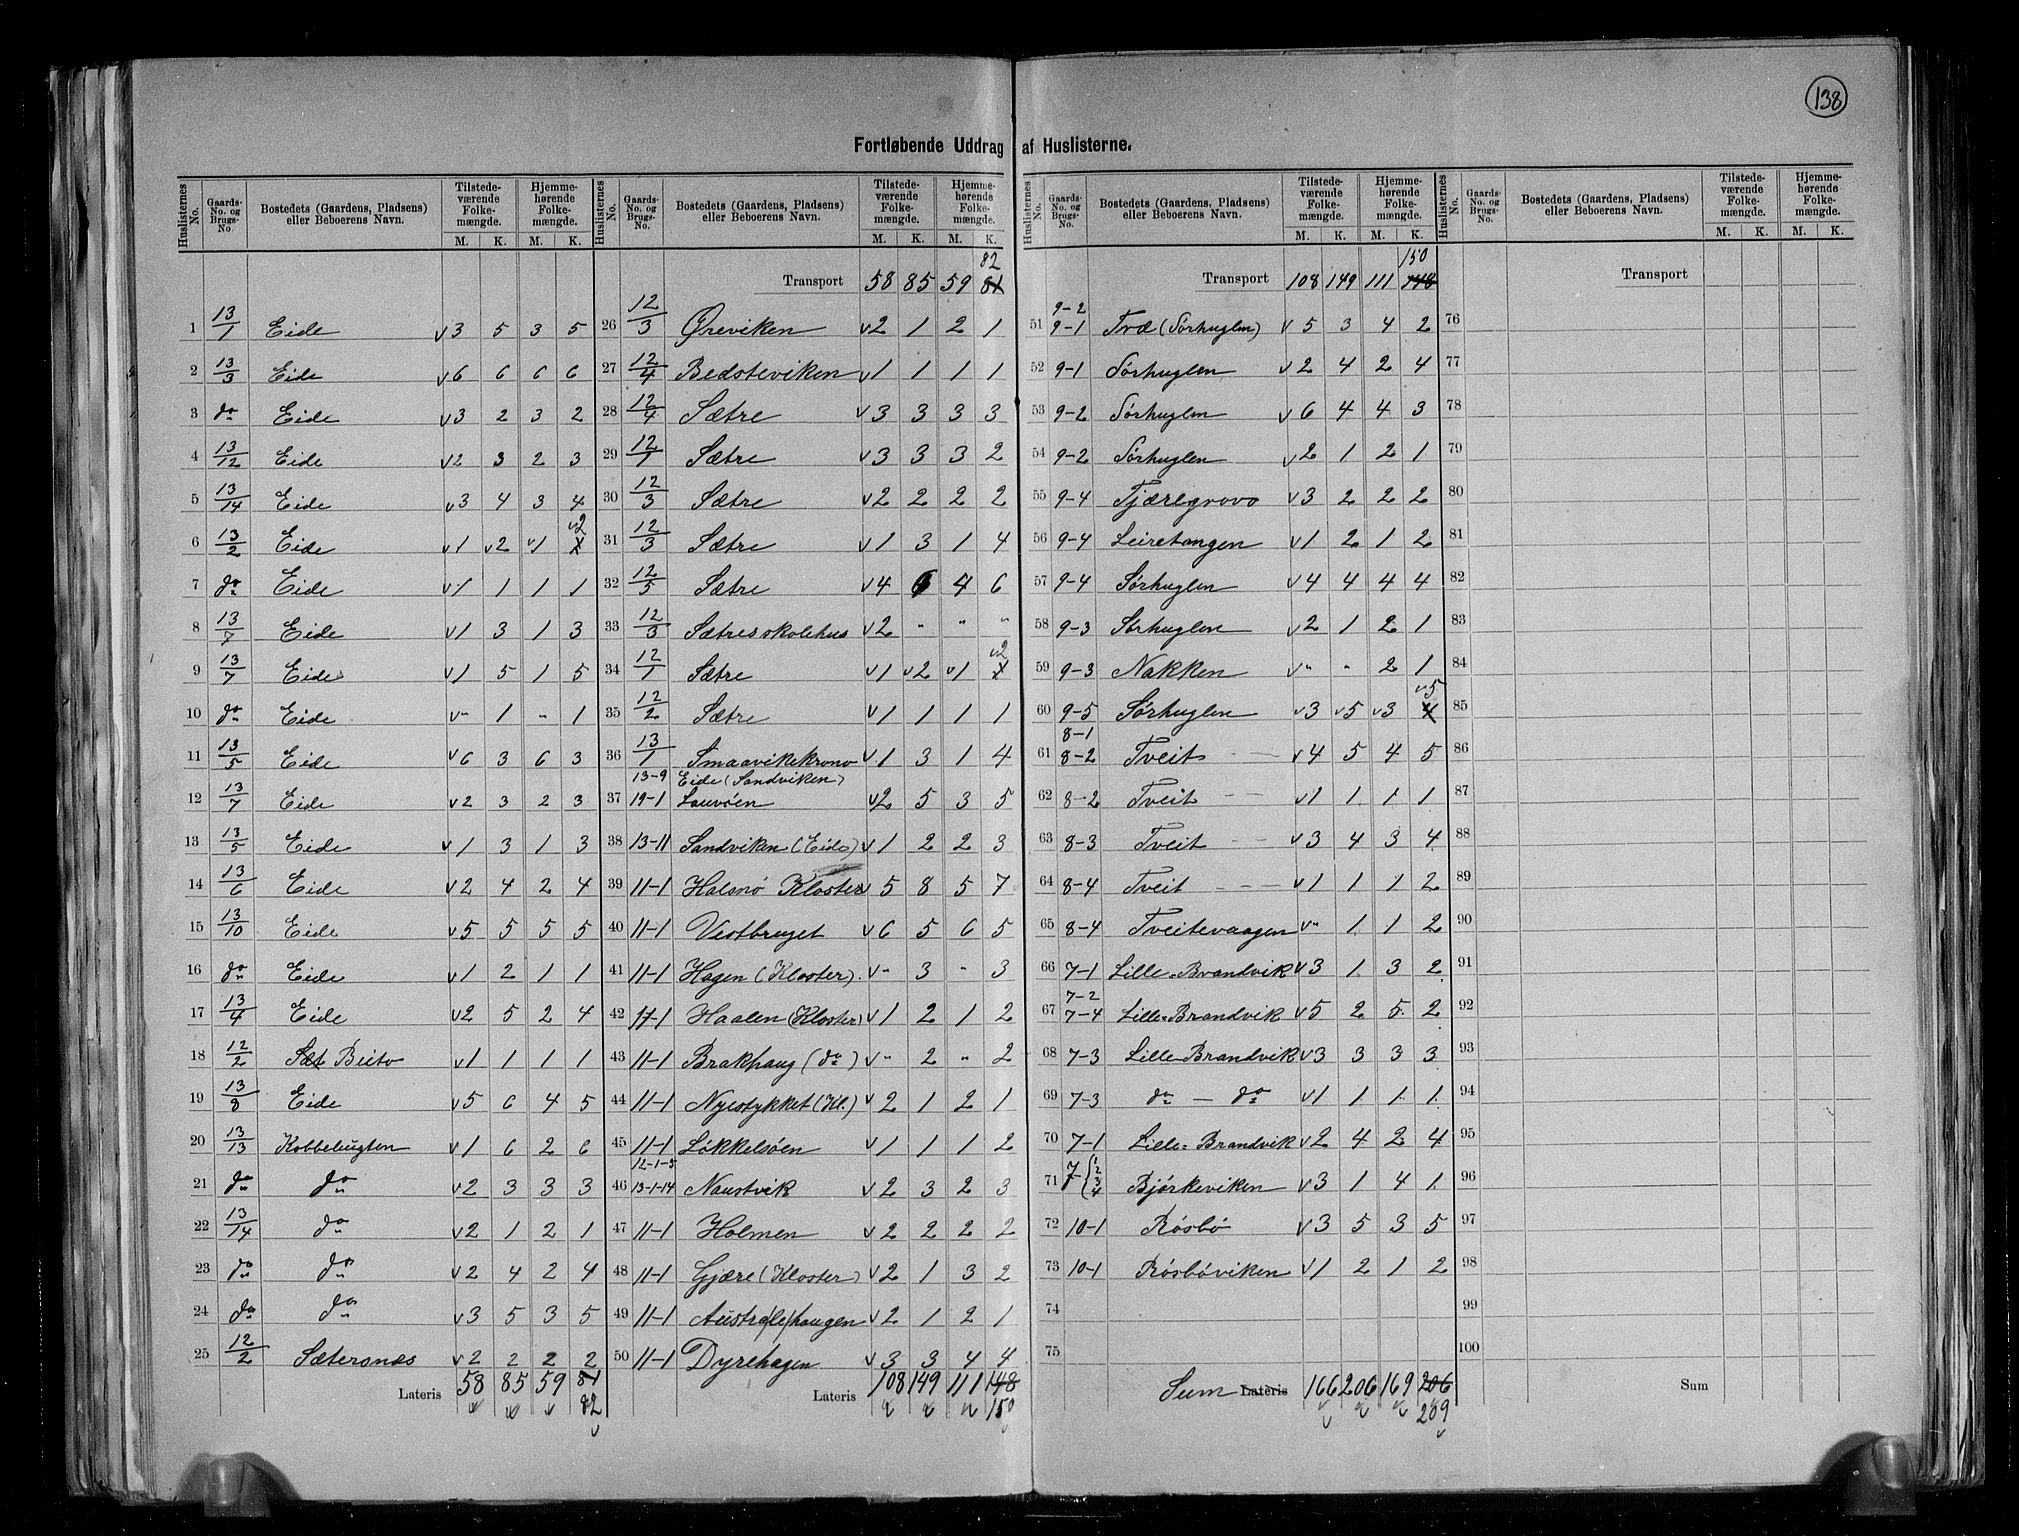 138
Fortløbende Uddrag af Huslisterne.
Huslisternes No. Gaards-No. og Brugs-No. Bostedets (Gaardens, Pladsens) eller Beboerens Navn. Tilstedeværende Folkemængde. M. K. Hjemmehørende Folkemængde. M. K.
1 13/1 Eide v3 5 3 5
2 13/3 Eide v6 6 6 6
3 do Eide v3 2 3 2
4 13/12 Eide v2 3 2 3
5 13/14 Eide v3 4 3 4
6 13/2 Eide v1 v2 v1 v2
7 do Eide v1 1 1 1
8 13/7 Eide v1 3 1 3
9 13/7 Eide v1 5 1 5
10 do Eide v- 1 - 1
11 13/5 Eide v6 3 6 3
12 13/7 Eide v2 3 2 3
13 13/5 Eide v1 3 1 3
14 13/6 Eide v2 4 2 4
15 13/10 Eide v5 5 5 5
16 do Eide v1 2 1 1
17 13/4 Eide v2 5 2 4
18 12/2 Sæt Beito v1 1 1 1
19 13/8 Eide v5 6 4 5
20 13/13 Kobbebugten v1 6 2 6
21 do do v2 3 3 3
22 13/14 do v2 1 2 1
23 do do v2 4 2 4
24 do do v3 5 3 5
25 12/2 Sætersnæs v2 2 2 2
Lateris 58 85 59 81
82
Huslisternes No. Gaards-No. og Brugs-No. Bostedets (Gaardens, Pladsens) eller Beboerens Navn. Tilstedeværende Folkemængde. M. K. Hjemmehørende Folkemængde. M. K.
82
Transport 58 85 59 81
26 12/3 Øreviken v2 1 2 1
27 12/4 Bedsteviken v1 1 1 1
28 12/4 Sætre v3 3 3 3
29 12/1 Sætre v3 3 3 2
30 12/3 Sætre v2 2 2 2
31 12/3 Sætre v1 3 1 4
32 12/5 Sætre v4 6 4 6
33 12/3 Sætresskolehus v2 " " "
34 12/1 Sætre v1 v2 v1 v2
35 12/2 Sætre v1 1 1 1
36 13/1 Smaavikekrono v1 3 1 4
13-9 Eide (Sandviken)
37 19-1 Lauvøen v2 5 3 5
38 13-11 Sandviken (Eide) v1 2 2 3
39 11-1 Halsnø Kloster v5 8 5 7
40 11-1 Vestbruget v6 5 6 5
41 11-1 Hagen (Kloster) v- 3 - 3
42 11-1 Haalen (Kloster) v1 2 1 2
43 11-1 Brakhaug (do) v- 2 " 2
44 11-1 Nyestykket (Kl.) v2 1 2 1
45 11-1 Løkkelsøen v1 1 1 2
12-1-5
46 13-1-14 Naustvik v2 3 2 3
47 11-1 Holmen v2 2 2 2
48 11-1 Gjære (Kloster) v2 1 3 2
49 11-1 Austra(le)haugen v2 1 2 1
50 11-1 Dyrehagen v3 3 4 4
Lateris 108 149 111 148
150
Huslisternes No. Gaards-No. og Brugs-No. Bostedets (Gaardens, Pladsens) eller Beboerens Navn. Tilstedeværende Folkemængde. M. K. Hjemmehørende Folkemængde. M. K.
150
Transport 108 149 111 148
9-2
51 9-1 Træ (Sørhuglen) v5 3 4 2
52 9-1 Sørhuglen v2 4 2 4
53 9-2 Sørhuglen v6 4 4 3
54 9-2 Sørhuglen v2 1 2 1
55 9-4 Tjæregrovo v3 2 2 2
56 9-4 Leiretangen v1 2 1 2
57 9-4 Sørhuglen v4 4 4 4
58 9-3 Sørhuglen v2 1 2 1
59 9-3 Nakken v- - 2 1
v5
60 9-5 Sørhuglen v3 v5 v3 4
8-1
61 8-2 Tveit v4 5 4 5
62 8-2 Tveit v1 1 1 1
63 8-3 Tveit v3 4 3 4
64 8-4 Tveit v1 1 1 2
65 8-4 Tveitevaagen v- 1 1 2
66 7-1 Lille-Brandvik v3 1 3 2
7-2
67 7-4 Lille-Brandvik v5 2 5 2
68 7-3 Lille-Brandvik v3 3 3 3
69 7-3 do — do v1 1 1 1
70 7-1 Lille-Brandvik v2 4 2 4
71 7-{1 2 3 4 Bjørkeviken v3 1 4 1
72 10-1 Røsbø v3 5 3 5
73 10-1 Røsbøviken v1 2 1 2
74
75
Sum Lateris 166 206 169 206
209
Huslisternes No. Gaards-No. og Brugs-No. Bostedets (Gaardens, Pladsens) eller Beboerens Navn. Tilstedeværende Folkemængde. M. K. Hjemmehørende Folkemængde. M. K.
Transport
76
77
78
79
80
81
82
83
84
85
86
87
88
89
90
91
92
93
94
95
96
97
98
99
100
Sum